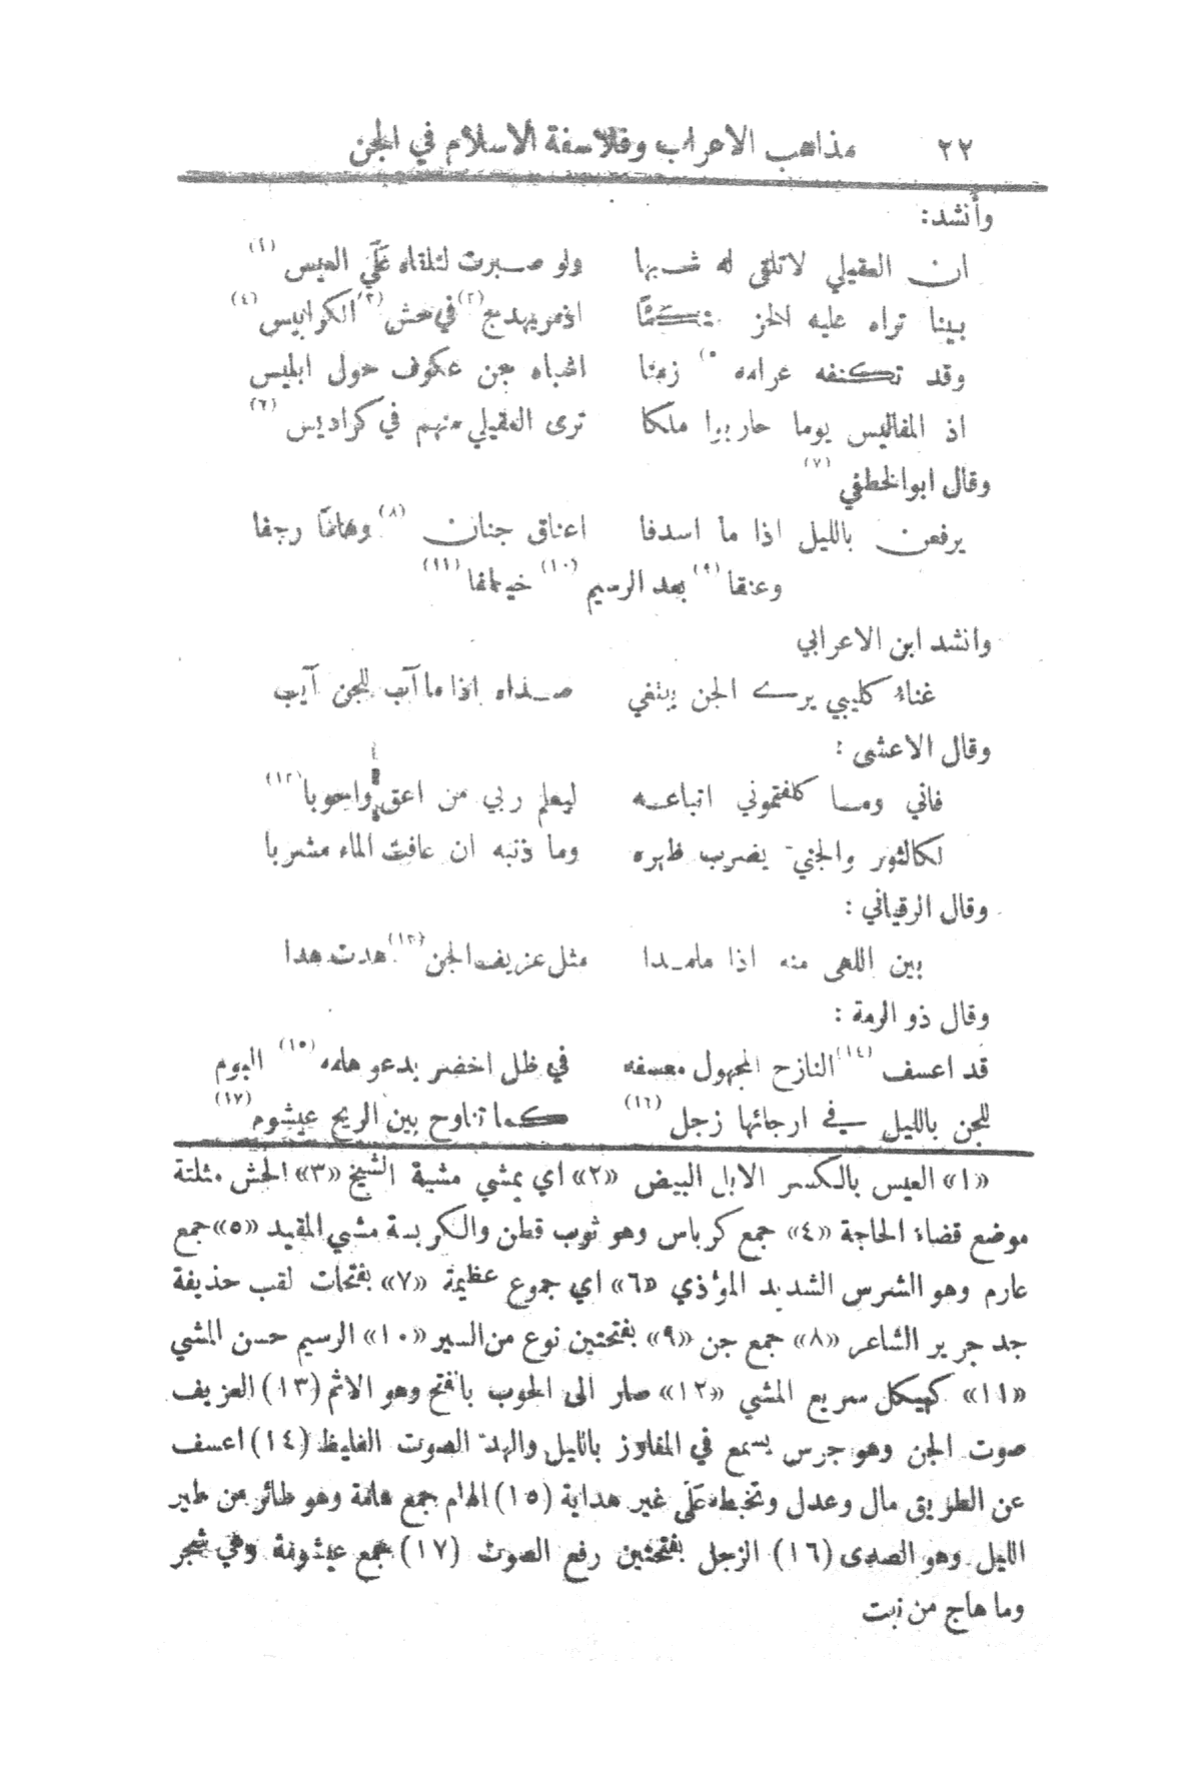 ٢٢ مذاهب الاعراب وفلاسفة الاسلام في الجن
وأنشد:
ان العقيلي لاتلقى له شبها ولو صبرت لتلقاه عَلَى العيس (١)
بينا تراه عليه الخز متكئًا اذ مر يهدج (٢) في حش (٣) الكرابيس (٤)
وقد تكنفه عرامه (٥) زمنا اشباه جن عكوف حول ابليس
اذ المفاليس يوما حاربوا ملكا ترى العقيلي منهم في كراديس (٦)
وقال ابوالخطفي (٧)
يرفعن بالليل اذا ما اسدفا اعناق جنان (٨) وهامًا رجفا
وعنقا (٩) بعد الرسيم (١٠) خيطفا (١١)
وانشد ابن الاعرابي
غناءُ كليبي يرى الجن يبتغي صداه اذا ما آب للجن آيب
وقال الاعشى :
فاني وما كلفتموني اتباعه ليعلم ربي من اعق واحوبا (١٢)
لكالثور والجني يضرب ظهره وما ذنبه ان عافت الماء مشربا
وقال الرقياني :
بين اللهى منه اذا ما مدا مثل عزيف الجن (١٣) هدت هدا
وقال ذو الرمة :
قد اعسف (١٤) النازح المجهول معسفه في ظل اخضر يدعو هامه (١٥) البوم
للجن بالليل في ارجائها زجل (١٦) كما تناوح بين الريح عيشوم (١٧)
«١» العيس بالكسر الابل البيض «٢» اي يمشي مشية الشيخ «٣» الحش مثلثة
موضع قضاء الحاجة «٤» جمع كرباس وهو ثوب قطن والكربسة مشي المقيد «٥» جمع
عارم وهو الشرس الشديد المؤذي «٦» اي جموع عظيمة «٧» بفتحات لقب حذيفة
جد جرير الشاعر «٨» جمع جن «٩» بفتحتين نوع من السير «١٠» الرسيم حسن المشي
«١١» كهيكل سريع المشي «١٢» صار الى الحوب بالفتح وهو الاثم (١٣) العزيف
صوت الجن وهو جرس يسمع في المفاوز بالليل والهدّ الصوت الغليظ (١٤) اعسف
عن الطريق مال وعدل وتخبطه عَلَى غير هداية (١٥) الهام جمع هامة وهو طائر من طير
الليل وهو الصدى (١٦) الزجل بفتحتين رفع الصوت (١٧) جمع عيشومة وهي شجر
وما هاج من نبت